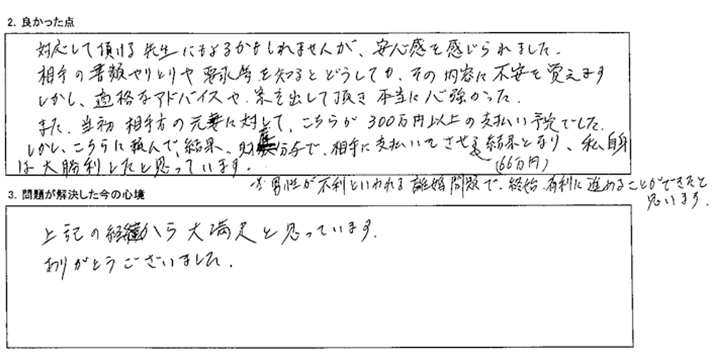 2. 良かった点
対応して頂ける先生にもよるかもしれませんが、安心感を感じられました。
相手の書類やりとりや要求等を知るとどうしても、その内容に不安を覚えます
しかし、適格なアドバイスや、案を出して頂き本当に心強かった。
また、当初相手方の元妻に対して、こちらが300万円以上の支払い予定でした。
しかし、こちらに頼んで、結果、財産分与で、相手に支払いてさせる結果となり、私自身
は大勝利したと思っています。
(66万円)
※男性が不利といわれる離婚問題で、終始、有利に進めることができたと
思います。
3. 問題が解決した今の心境
上記の経緯から大満足と思っています。
ありがとうございました。